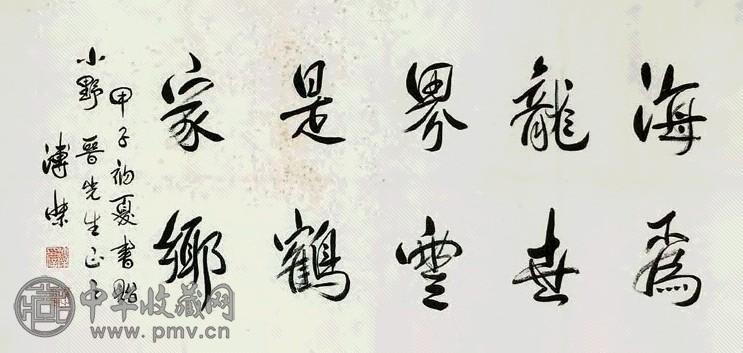 海為
龍世
界雲
是鶴
家鄉
甲子初夏書貽
小野 晉先生正之
溥傑
中华收藏网
www.pmv.cn